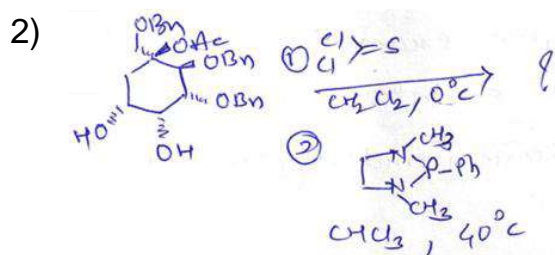 2)
OBn
OAc
OBn
OBn
HO
OH
① Cl Cl =S
CH2Cl2, 0°C
?
② CH3
N
P-Ph
N
CH3
CHCl3, 40°C